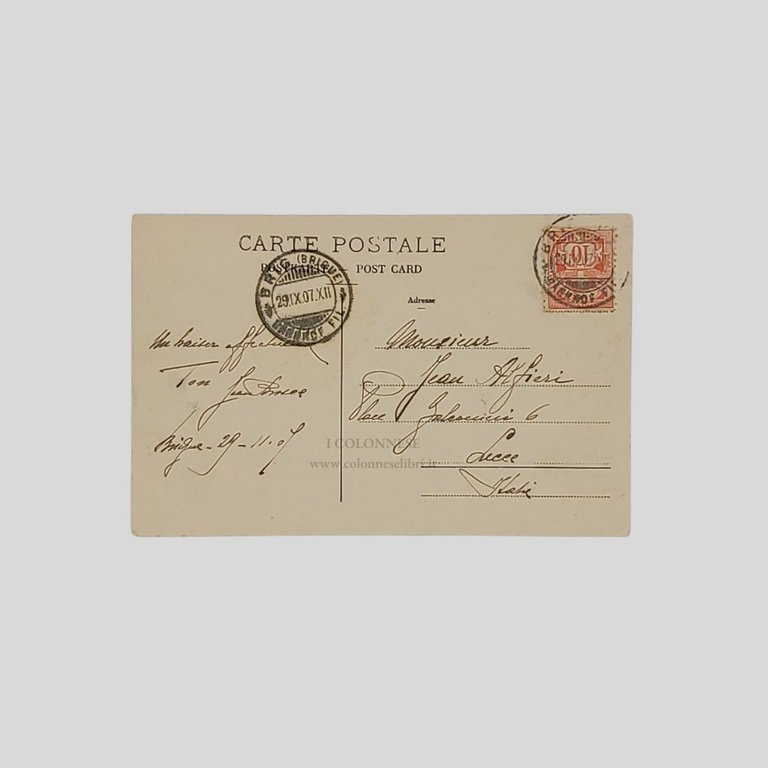 CARTE POSTALE
POSTKARTE POST CARD
BRIG (BRIGUE)
29.IX.07.XII
Adresse
10
Un baiser affectueux
Ton
Brigue - 29-11-07
Monsieur
Jean Alfieri
Place 6
Lecce
Italie
I COLONNESE
www.colonneselibri.it